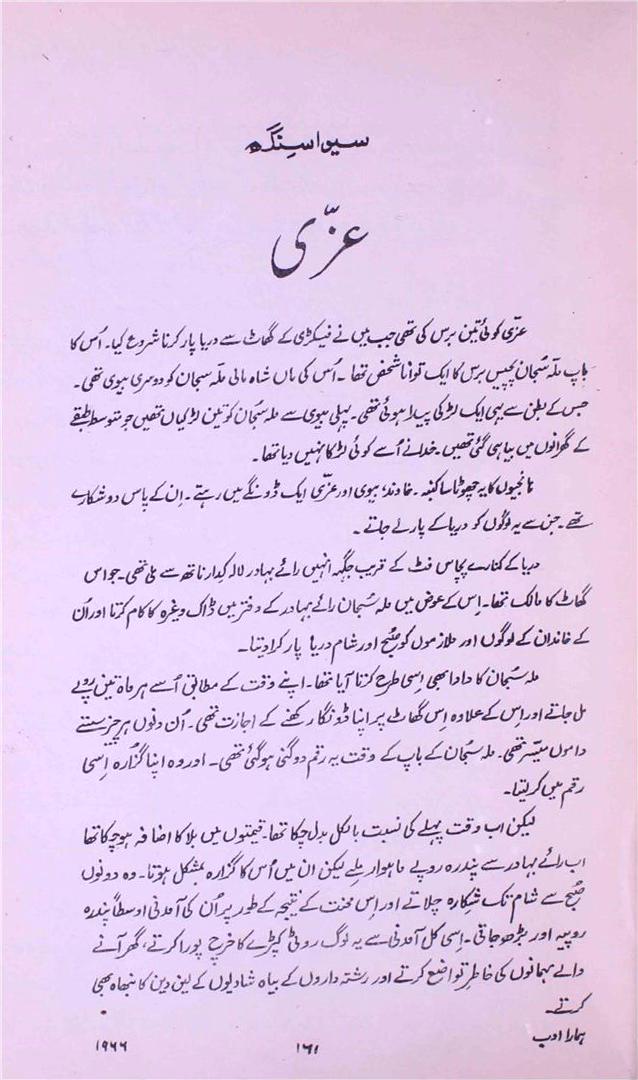 سیوا سِنگھ
عزّی
عزّی کوئی تین برس کی تھی جب میں نے فیکڑی کے گھاٹ سے دریا پار کرنا شروع کیا۔ اُس کا
باپ ملہ سُبحان پچیس برس کا ایک توانا شخص تھا ۔ اُس کی ماں شاہ مالی ملہ سبحان کو دوسری بیوی تھی ۔
جس کے بطن سے یہی ایک لڑکی پیدا ہوئی تھی۔ پہلی بیوی سے ملہ سُبحان کو تین لڑکیاں تھیں جو متوسط طبقے
کے گھرانوں میں بیاہی گئی تھیں۔ خدا نے اُسے کوئی لڑکا نہیں دیا تھا۔
مانجیوں کا یہ چھوٹا سا کنبہ ۔ خاوند، بیوی اور عزّی ایک ڈونگے میں رہتے ۔ اِن کے پاس دو شکارے
تھے ۔ جن سے یہ لوگوں کو دریا کے پار لے جاتے ۔
دریا کے کنارے پچاس فٹ کے قریب جگہ انہیں رائے بہادر لالہ کیدار ناتھ سے ملی تھی ۔ جو اس
گھاٹ کا مالک تھا۔ اِس کے عوض میں ملہ سُبحان رائے بہادر کے دفتر میں ڈاک وغیرہ کا کام کرتا اور اُن
کے خاندان کے لوگوں اور ملازموں کو صُبح اور شام دریا پار کرا دیتا۔
ملہ سُبحان کا دادا بھی اِسی طرح کرتا آیا تھا۔ اپنے وقت کے مطابق اُسے ہر ماہ تین روپے
مل جاتے اور اِس کے علاوہ اِس گھاٹ پر اپنا ڈونگا رکھنے کے اجازت تھی۔ اُن دنوں ہر چیز سستے
داموں میسّر تھی۔ ملہ سُبحان کے باپ کے وقت یہ رقم دوگنی ہو گئی تھی۔ اور وہ اپنا گزارہ اِسی
رقم میں کر لیتا۔
لیکن اب وقت پہلے کی نسبت بالکل بدل چکا تھا۔ قیمتوں میں بلا کا اضافہ ہو چکا تھا
اب رائے بہادر سے پندرہ روپے ماہوار ملے لیکن ان میں اُس کا گزارہ بمشکل ہوتا ۔ وہ دونوں
صُبح سے شام تک شِکارہ چلاتے اور اِس محنت کے نتیجہ کے طور پر اُن کی آمدنی اوسطاً پندرہ
روپیہ اور بڑھ جاتی ۔ اِسی کل آمدنی سے یہ لوگ روٹی کپڑے کا خرچ پورا کرتے ، گھر آنے
والے مہمانوں کی خاطر تواضع کرتے اور رشتہ داروں کے بیاہ شادیوں کے لین دین کا نبھاہ بھی
کرتے ۔
ہمارا ادب
۱۶۱
۱۹۶۶